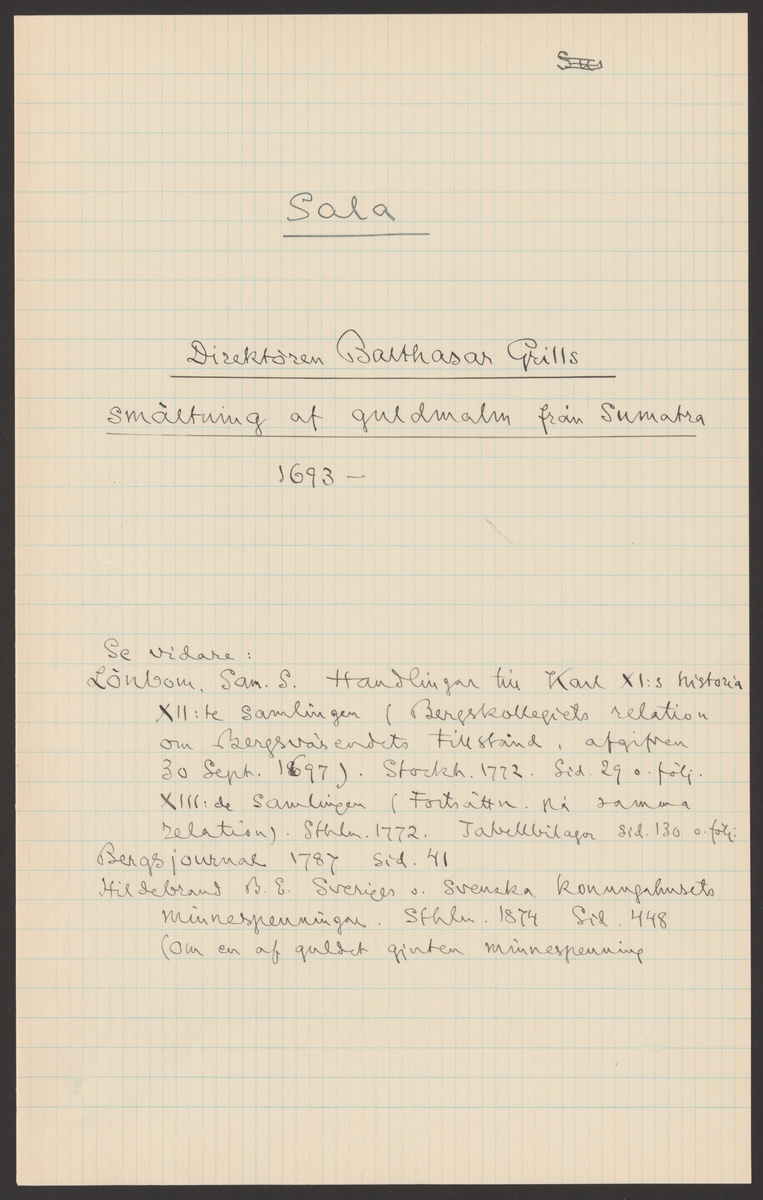 Sala
Direktören Balthasar Grills
smältning af guldmalm från Sumatra
1693 —
Se vidare:
Lönbom, Sam. S. Handlingar till Karl XI:s historia
XII:te Samlingen (Bergskollegiets relation
om Bergsväsendets Tillstånd, afgifven
30 Sept. 1697). Stockh. 1772. Sid. 29 o. följ.
XIII:de Samlingen (Fortsättn. på samma
relation). Sthlm. 1772. Tabellbilagor Sid. 130 o. följ.
Bergsjournal 1787 Sid. 41
Hildebrand B. E. Sveriges o. Svenska konungahusets
minnespenningar. Sthlm. 1874 Sid. 448
(Om en af guldet gjuten minnespenning